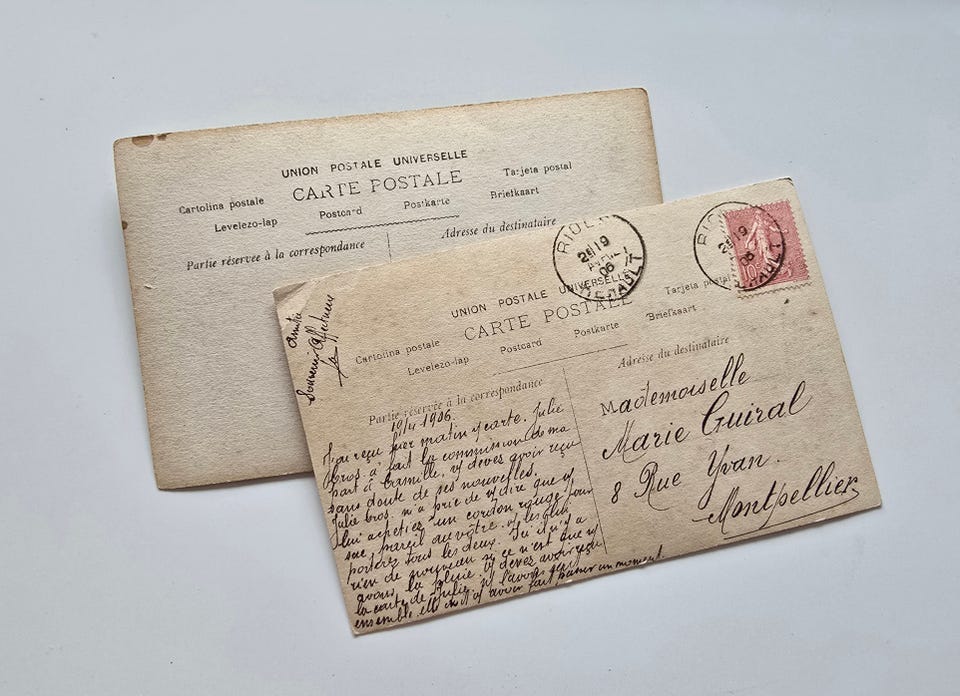 UNION POSTALE UNIVERSELLE
CARTE POSTALE
Cartolina postale
Tarjeta postal
Levelezo-lap
Postcard
Postkarte
Briefkaart
Partie réservée à la correspondance
Adresse du destinataire
RIOL
19
AVRIL
06
HERAULT
UNION POSTALE UNIVERSELLE
CARTE POSTALE
Cartolina postale
Tarjeta postal
Levelezo-lap
Postcard
Postkarte
Briefkaart
Partie réservée à la correspondance
Adresse du destinataire
RIOL
19
06
HERAULT
10
Souvenir Affectueux
19/4 1906.
J'ai reçu hier matin carte. Julie
Gros. a fait la commission de ma
part à Camille, vs devez avoir reçu
sans doute de ses nouvelles.
Julie Gros. m'a prié de vs dire que
lui achetiez un cordon rouge pour
sac pareil au vôtre.
porterez tous les deux. Ici il n'y a
rien de nouveau si ce n'est que ns
avons la pluie. vs devez avoir reçu
la carte de Julie, ns l'avons
ensemble, elle avoir fait passer un moment
Mademoiselle
Marie Guiral
8 Rue Yvan.
Montpellier